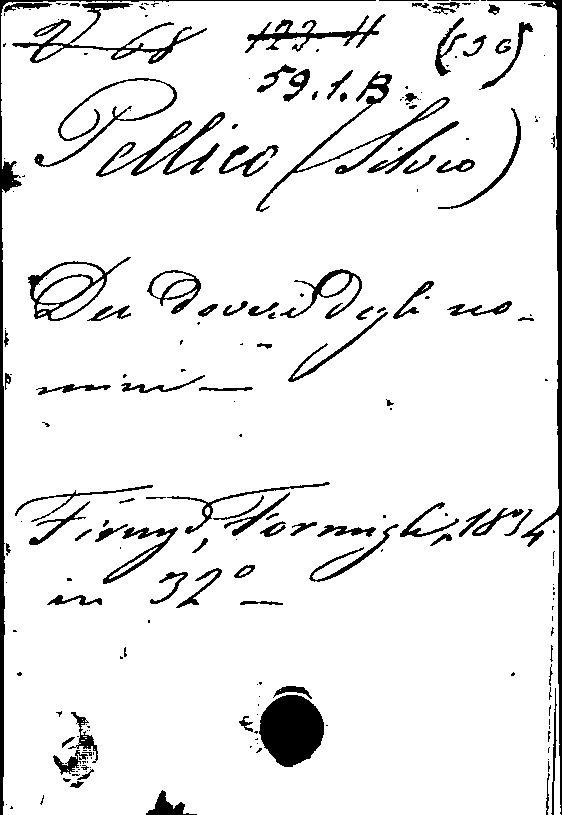 V. 68 123. H (530)
59.1.B
Pellico (Silvio)
Dei doveri degli uo-
mini —
Firenze, Formigli, 1834
in 32° —